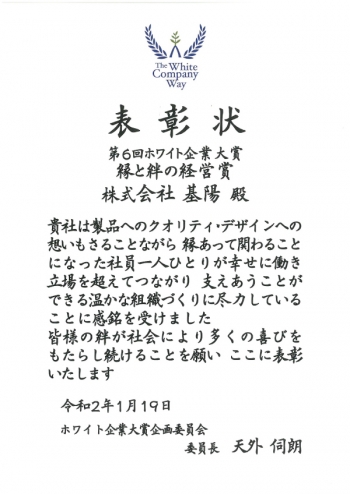 The White
Company
Way
表彰状
第6回ホワイト企業大賞
縁と絆の経営賞
株式会社 基陽 殿
貴社は製品へのクオリティ・デザインへの
想いもさることながら 縁あって関わること
になった社員一人ひとりが幸せに働き
立場を超えてつながり 支えあうことが
できる温かな組織づくりに尽力している
ことに感銘を受けました
皆様の絆が社会により多くの喜びを
もたらし続けることを願い ここに表彰
いたします
令和2年1月19日
ホワイト企業大賞企画委員会
委員長 天外 伺朗